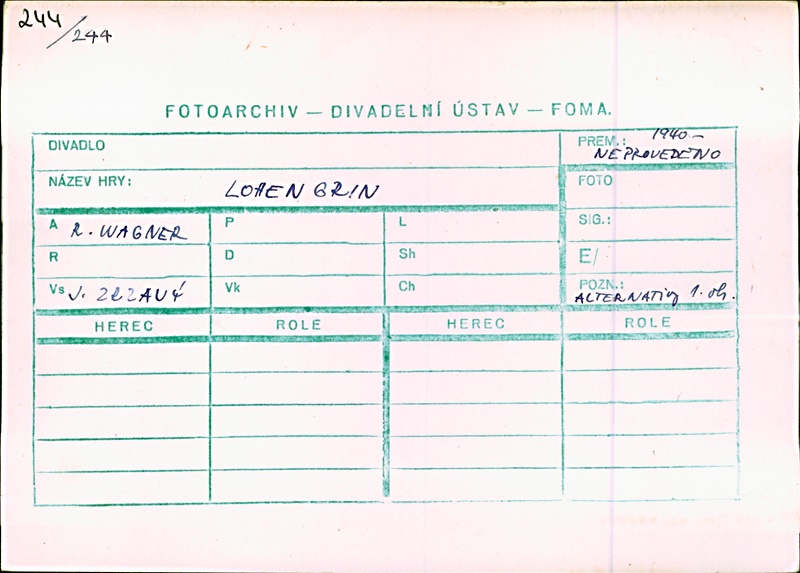 244
/244
FOTOARCHIV — DIVADELNÍ ÚSTAV — FOMA.
DIVADLO
PREM.: 1940 –
NEPROVEDENO
NÁZEV HRY: LOHENGRIN
FOTO
A R. WAGNER P L SIG.:
R D Sh E/
Vs J. ZRZAVÝ Vk Ch POZN.:
ALTERNATivy 1. ob.
HEREC ROLE HEREC ROLE